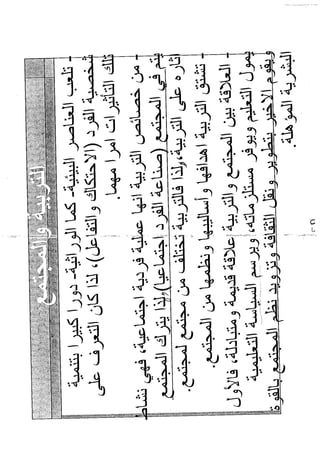 التربية والمجتمع
- تلعب العناصر البيئية- كما الوراثية- دورا كبيرا بتنمية
شخصية الفرد (الاحتكاك والتفاعل)، لذا كان التعرف على
تلك التأثيرات امرا مهما.
- من خصائص التربية انها عملية فردية اجتماعية، فهي نشاط
يتم في المجتمع (صناعة الفرد اجتماعيا)، لذا يترك المجتمع
اثاره على التربية، لذا فالتربية تختلف من مجتمع لمجتمع.
- تشتق التربية اهدافها وأساليبها ونظمها من المجتمع.
- العلاقة بين المجتمع والتربية علاقة قديمة ومتبادلة، فالأول
يمول التعليم ويوفر مستلزماته، ويرسم السياسة التعليمية
ويقوم الاخير بتطوير ونقل الثقافة وتزويد نظم المجتمع بالقوة
البشرية المؤهلة.